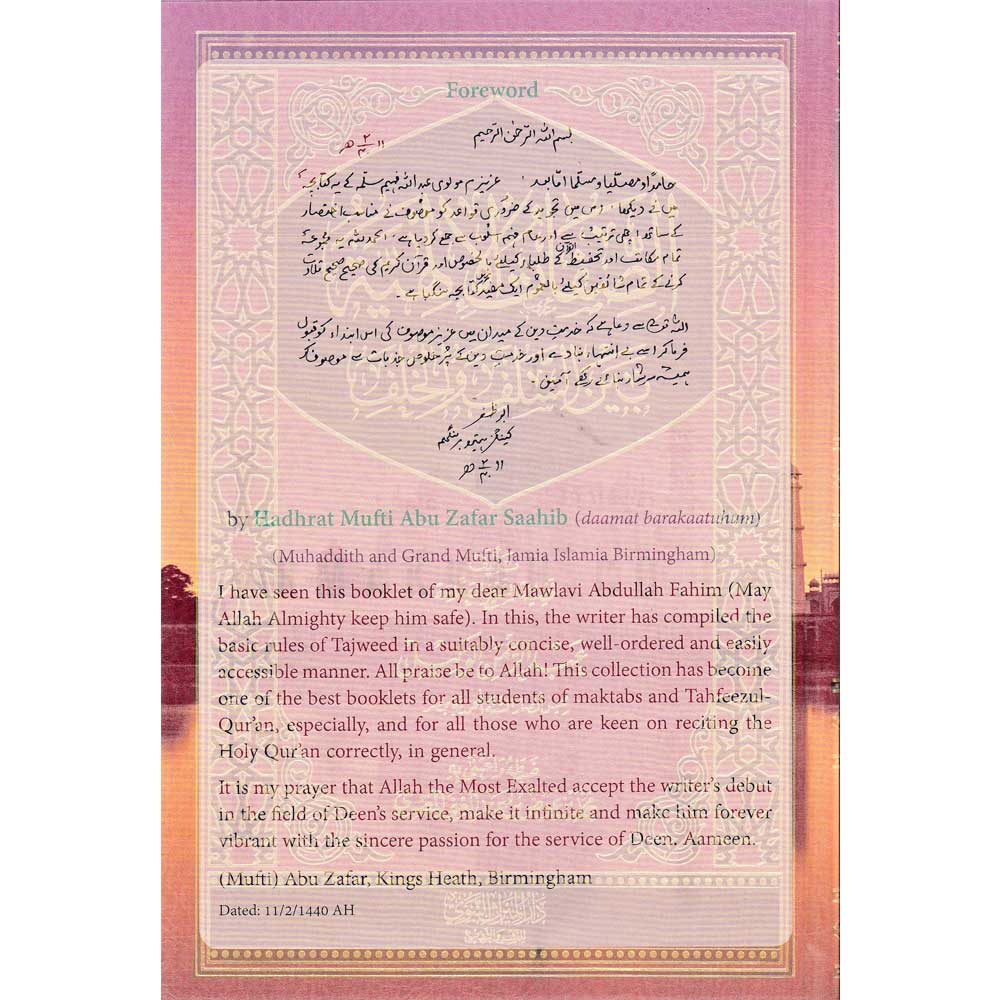 Foreword
بسم اللہ الرحمٰن الرحیم
۱۱/۲/۴۰ھ
حامداً و مصلّیاً و مسلّماً امّا بعد عزیزم مولوی عبداللہ فہیم سلّمہ کے یہ کتابچہ
میں نے دیکھا، اس میں تجوید کے ضروری قواعد کو موصوف نے مناسب اختصار
کے ساتھ اچھی ترتیب سے اور عام فہم اسلوب سے جمع کردیا ہے، الحمد للہ یہ مجموعہ
تمام مکاتب اور تحفیظ القرآن کے طلباء کیلئے بالخصوص اور قرآن کریم کی صحیح صحیح تلاوت
کرنے کے تمام شائقین کیلئے بالعموم ایک مفید کتابچہ بن گیا ہے۔
اللہ تعالیٰ سے دعا ہے کہ خدمتِ دین کے میدان میں عزیز موصوف کی اس ابتداء کو قبول
فرماکر اسے بے انتہاء بنادے اور خدمتِ دین کے پُر خلوص جذبات سے موصوف کو
ہمیشہ سرشار بنائے رکھے آمین۔
ابو ظفر
کینگز ہیتھ برمنگھم
۱۱/۲/۴۰ھ
by Hadhrat Mufti Abu Zafar Saahib (daamat barakaatuhum)
(Muhaddith and Grand Mufti, Jamia Islamia Birmingham)
I have seen this booklet of my dear Mawlavi Abdullah Fahim (May
Allah Almighty keep him safe). In this, the writer has compiled the
basic rules of Tajweed in a suitably concise, well-ordered and easily
accessible manner. All praise be to Allah! This collection has become
one of the best booklets for all students of maktabs and Tahfeezul-
Qur'an, especially, and for all those who are keen on reciting the
Holy Qur'an correctly, in general.
It is my prayer that Allah the Most Exalted accept the writer's debut
in the field of Deen's service, make it infinite and make him forever
vibrant with the sincere passion for the service of Deen. Aameen.
(Mufti) Abu Zafar, Kings Heath, Birmingham
Dated: 11/2/1440 AH